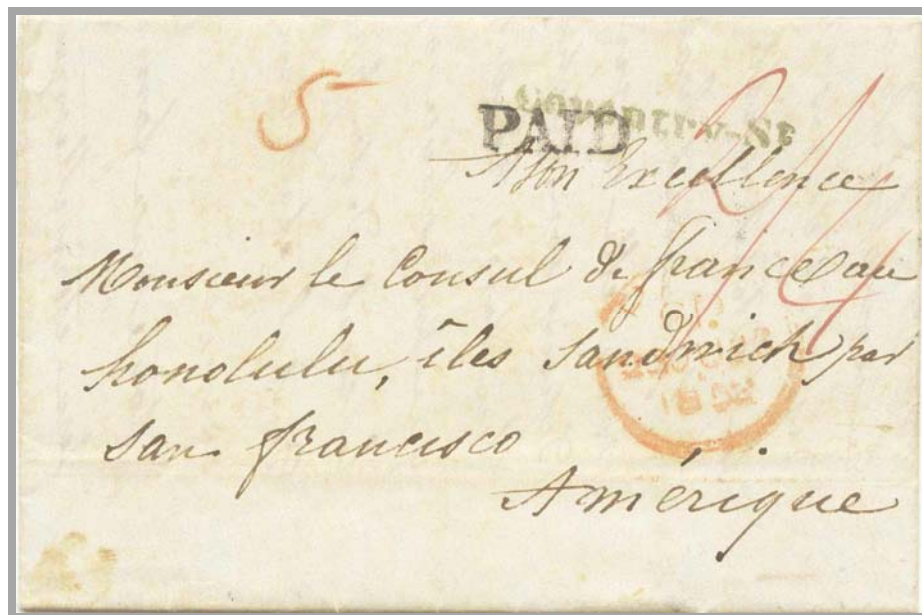 5
Coventry-St
PAID
2/4
A Son Excellence
Monsieur le Consul de france au
honolulu, îles Sandwich par
San francisco
Amérique